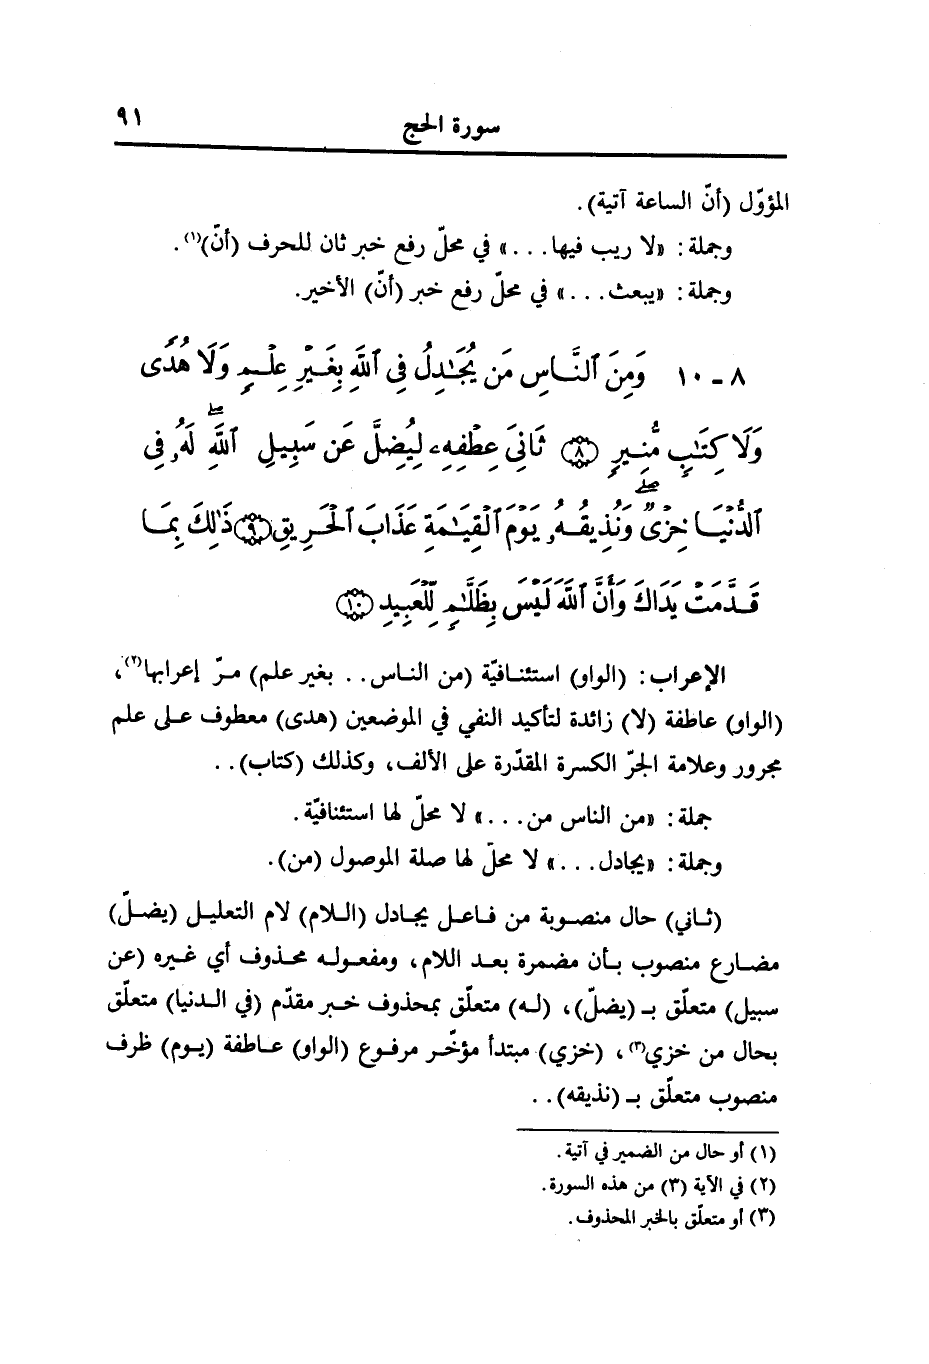 سورة الحج
٩١
المؤوّل (أنّ الساعة آتية).
وجملة: «لا ريب فيها...» في محلّ رفع خبر ثان للحرف (أنّ)(١).
وجملة: «يبعث...» في محلّ رفع خبر (أنّ) الأخير.
٨ - ١٠ وَمِنَ ٱلنَّاسِ مَن يُجَٰدِلُ فِى ٱللَّهِ بِغَيْرِ عِلْمٍ وَلَا هُدًى
وَلَا كِتَٰبٍ مُّنِيرٍ ٨ ثَانِىَ عِطْفِهِۦ لِيُضِلَّ عَن سَبِيلِ ٱللَّهِۖ لَهُۥ فِى
ٱلدُّنْيَا خِزْىٌۖ وَنُذِيقُهُۥ يَوْمَ ٱلْقِيَٰمَةِ عَذَابَ ٱلْحَرِيقِ ٩ ذَٰلِكَ بِمَا
قَدَّمَتْ يَدَاكَ وَأَنَّ ٱللَّهَ لَيْسَ بِظَلَّٰمٍ لِّلْعَبِيدِ ١٠
الإعراب: (الواو) استئنافيّة (من الناس.. بغير علم) مرّ إعرابها(٢)،
(الواو) عاطفة (لا) زائدة لتأكيد النفي في الموضعين (هدى) معطوف على علم
مجرور وعلامة الجرّ الكسرة المقدّرة على الألف، وكذلك (كتاب)..
جملة: «من الناس من...» لا محلّ لها استئنافيّة.
وجملة: «يجادل...» لا محلّ لها صلة الموصول (من).
(ثاني) حال منصوبة من فاعل يجادل (اللام) لام التعليل (يضلّ)
مضارع منصوب بأن مضمرة بعد اللام، ومفعوله محذوف أي غيره (عن
سبيل) متعلّق بـ (يضلّ)، (له) متعلّق بمحذوف خبر مقدّم (في الدنيا) متعلّق
بحال من خزي(٣)، (خزي) مبتدأ مؤخّر مرفوع (الواو) عاطفة (يوم) ظرف
منصوب متعلّق بـ (نذيقه)..
(١) أو حال من الضمير في آتية.
(٢) في الآية (٣) من هذه السورة.
(٣) أو متعلّق بالخبر المحذوف.